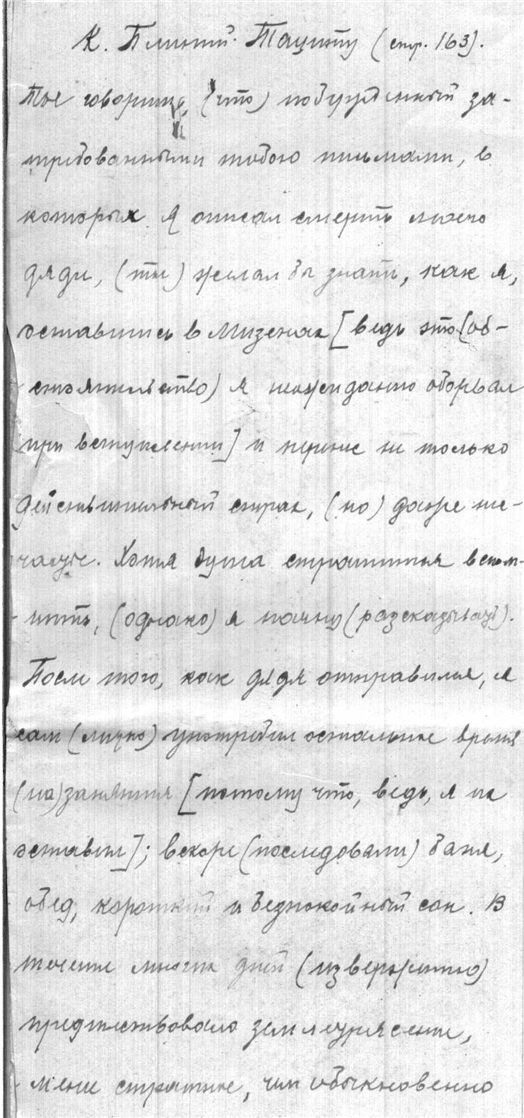 К. Плиний Тациту (стр. 163).
Ты говоришь, (что) побужденный за-
требованными тобою письмами, в
которых я описал смерть моего
дяди, (ты) желал бы знать, как я,
оставшись в Мизенах [ведь это (об-
стоятельство) я неожиданно оборвал
при вступлении] и перенес не только
действительный страх, (но) даже не-
счастье. Хотя душа страшится вспом-
нить, (однако) я начну (рассказывать).
После того, как дядя отправился, я
сам (лично) употребил остальное время
(на) занятия [потому что, ведь, я их
оставил]; вскоре (последовали) баня,
обед, короткий и безпокойный сон. В
течение многих дней (извержению)
предшествовало землетрясение,
менее страшное, чем обыкновенно